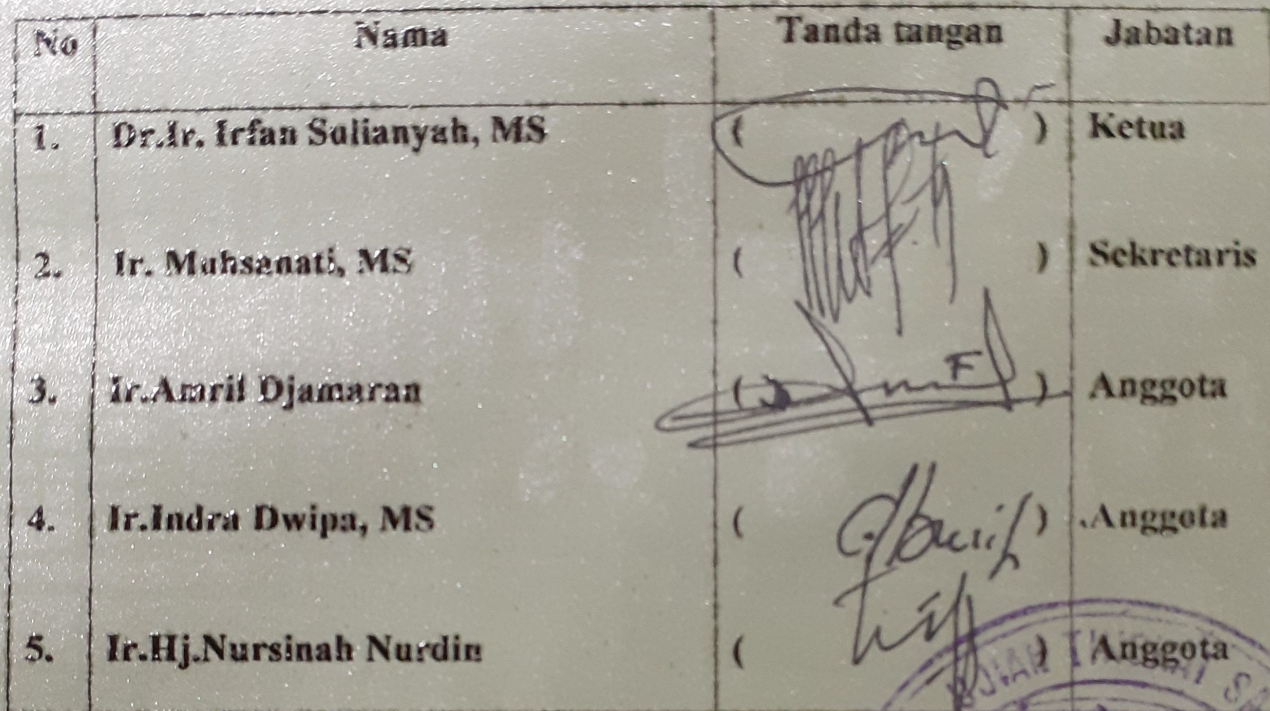 No Nama Tanda tangan Jabatan
1. Dr.Ir. Irfan Sulianyah, MS ( ) Ketua
2. Ir. Muhsanati, MS ( ) Sekretaris
3. Ir.Amril Djamaran ( ) Anggota
4. Ir.Indra Dwipa, MS ( ) Anggota
5. Ir.Hj.Nursinah Nurdin ( ) Anggota